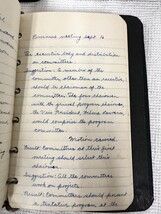 Business meeting Sept 16
The executive body and
on committees.
Suggestion: A member of the
committee other than an executive
should be chairman of the
committees. The four chairmen
with the general program chairman,
the Vice President,
would comprise the program
committee.
Motion carried.
Result: Committees at their first
meeting should select their
chairman.
Suggestion: Let the committees
work on projects.
Result: Committees should present
a tentative program at the